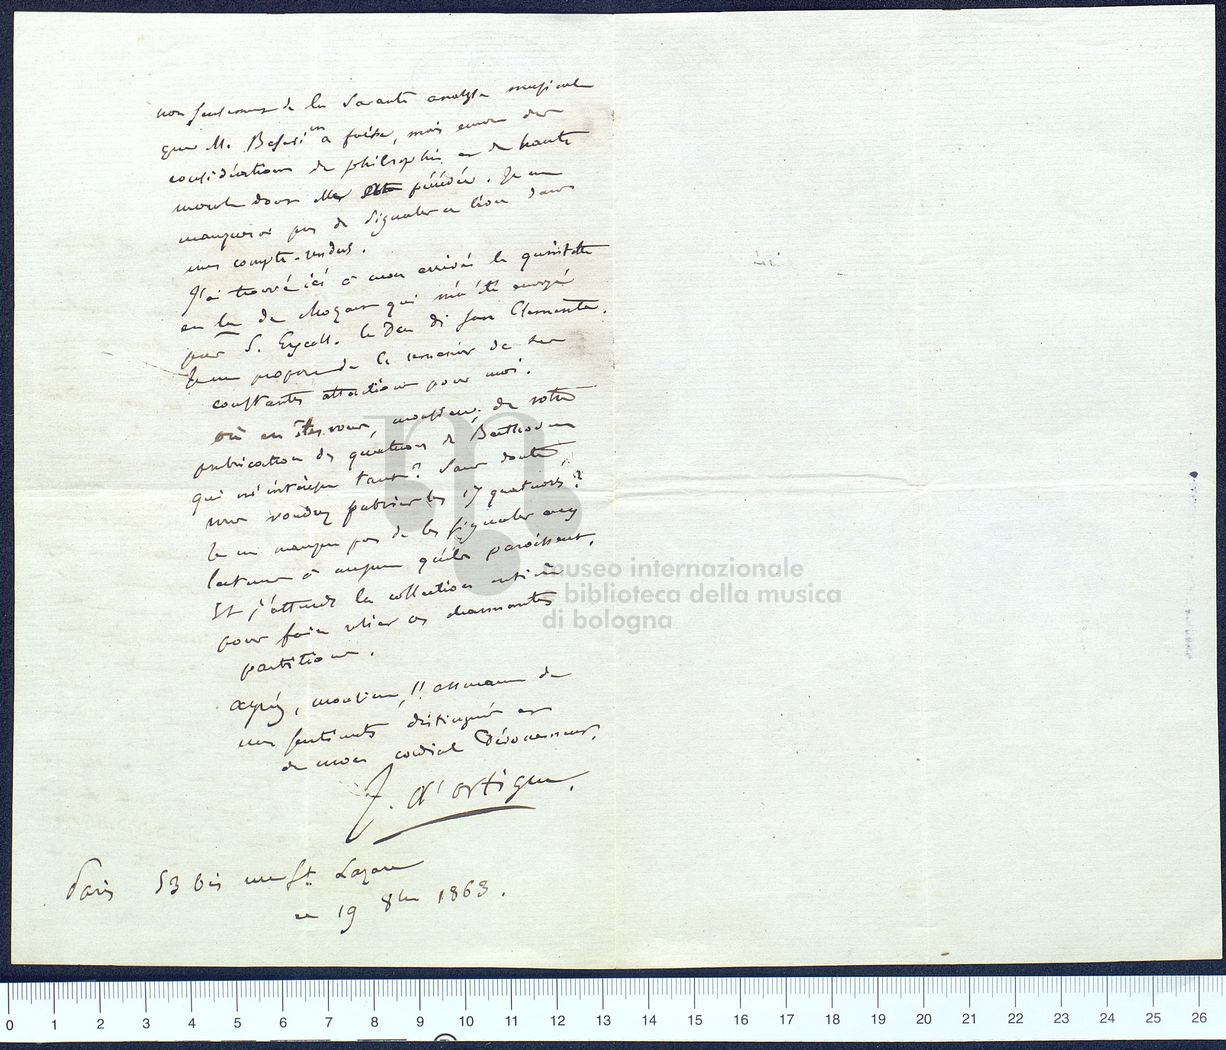 non seulement de la savante analyse musicale
que M. Basevi en a faite, mais encore des
considérations de philosophie et de haute
morale dont elle est précédée. Je ne
manquerai pas de signaler ce livre dans
mes compte-rendus.
J'ai trouvé ici à mon arrivée le quintette
en la de Mozart qui m'a été envoyé
par S. Excell. le Duc di San Clemente.
Je me propose de le remercier de ses
constantes attentions pour moi.
où en êtes vous, monsieur, de votre
publication des quatuors de Beethoven
qui m'intéresse tant? Sans doute,
vous voudrez publier les 17 quatuors?
Je ne manque pas de les signaler aux
lecteurs à mesure qu'ils paroissent.
Et j'attends la collection entière
pour faire relier ces charmantes
partitions.
agréez, monsieur, l'assurance de
mes sentiments distingués et
de mon cordial dévouement.
J. d'ortigue.
Paris 53 bis rue St. Lazare
ce 19 8bre 1863.
museo internazionale
e biblioteca della musica
di bologna
0 1 2 3 4 5 6 7 8 9 10 11 12 13 14 15 16 17 18 19 20 21 22 23 24 25 26